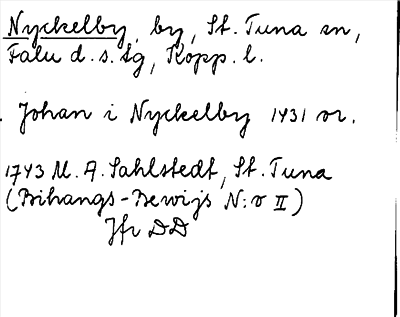 Nyckelby, by, St. Tuna sn,
Falu d.s. tg, Kopp. l.
Johan i Nyckelby 1431 or.
1743 M. A. Sahlstedt, St. Tuna
(Bihangs-Bewijs N:o II)
Jfr DD